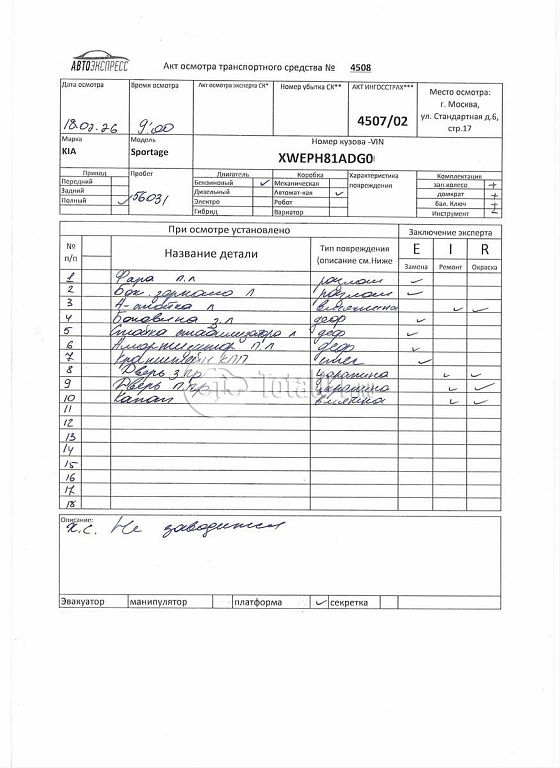 АВТОЭКСПРЕСС
Акт осмотра транспортного средства № 4508
Дата осмотра
Время осмотра
Акт осмотра эксперта СК*
Номер убытка СК**
АКТ ИНГОССТРАХ***
Место осмотра:
г. Москва,
ул. Стандартная д.6,
стр.17
18.02.26
9:00
4507/02
Марка
KIA
Модель
Sportage
Номер кузова -VIN
XWEPH81ADG0
Привод
Передний
Задний
Полный ✓
Пробег
56031
Двигатель
Бензиновый ✓
Дизельный
Электро
Гибрид
Коробка
Механическая
Автомат-кая ✓
Робот
Вариатор
Характеристика
повреждения
Комплектация
зап.колесо +
домкрат +
бал. Ключ +
Инструмент
При осмотре установлено
Заключение эксперта
№
п/п
Название детали
Тип повреждения
(описание см.Ниже
E I R
Замена Ремонт Окраска
1 Фара п.л разлом ✓
2 Бок. зеркало л разлом ✓
3 А-стойка л вмятина ✓ ✓
4 Боковина з.л деф ✓
5 Стойка стабилизатора л деф ✓
6 Амортизатор п.л деф ✓
7 Кронштейн КПП ✓
8 Дверь з.пр царапина ✓ ✓
9 Дверь п.пр царапина ✓ ✓
10 Капот вмятина ✓ ✓
11
12
13
14
15
16
17
18
Описание:
Х.С. Не заводится
Эвакуатор манипулятор платформа ✓ секретка